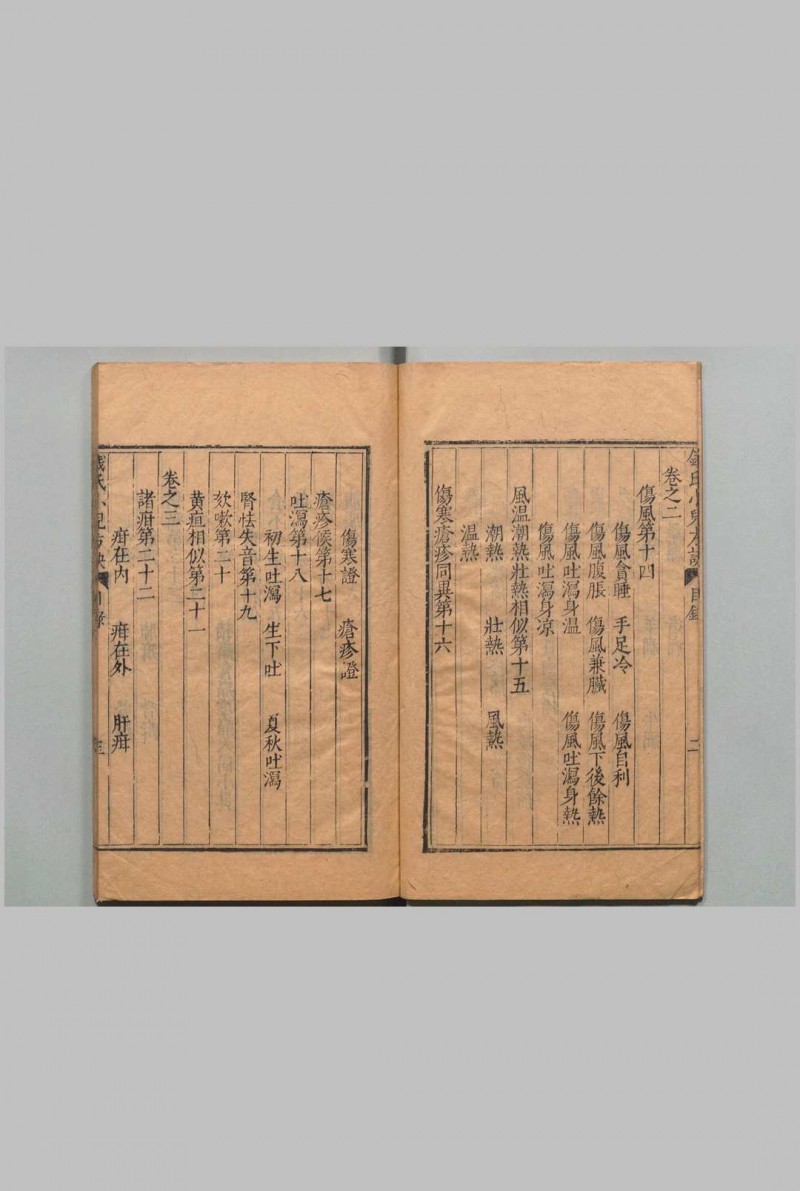 錢氏小兒方訣 目錄 二
卷之二
傷風第十四
傷風貪睡 手足冷 傷風自利
傷風腹脹 傷風兼臟 傷風下後餘熱
傷風吐瀉身温 傷風吐瀉身熱
傷風吐瀉身凉
風温潮熱壯熱相似第十五
潮熱 壯熱 風熱
温熱
傷寒瘡疹同異第十六
傷寒證 瘡疹證
瘡疹候第十七
吐瀉第十八
初生吐瀉 生下吐 夏秋吐瀉
腎怯失音第十九
欬嗽第二十
黄疸相似第二十一
卷之三
諸疳第二十二
疳在内 疳在外 肝疳
錢氏小兒方訣 目錄 三